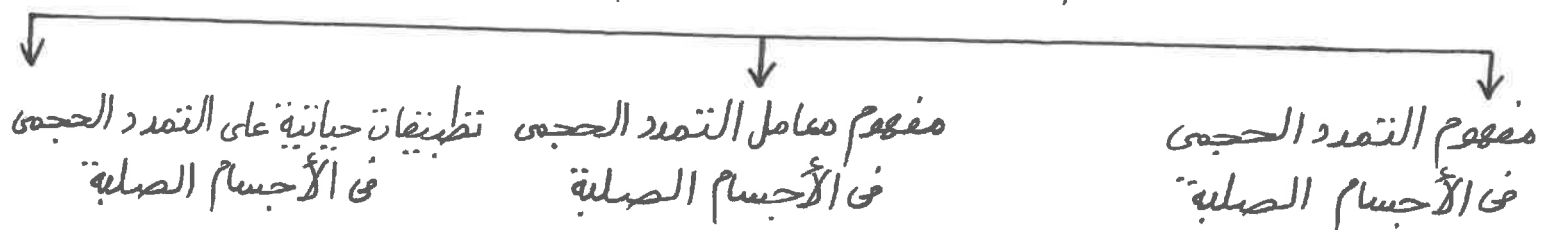 مفهوم التمدد الحجمى
فى الأجسام الصلبة
مفهوم معامل التمدد الحجمى
فى الأجسام الصلبة
تطبيقات حياتية على التمدد الحجمى
فى الأجسام الصلبة